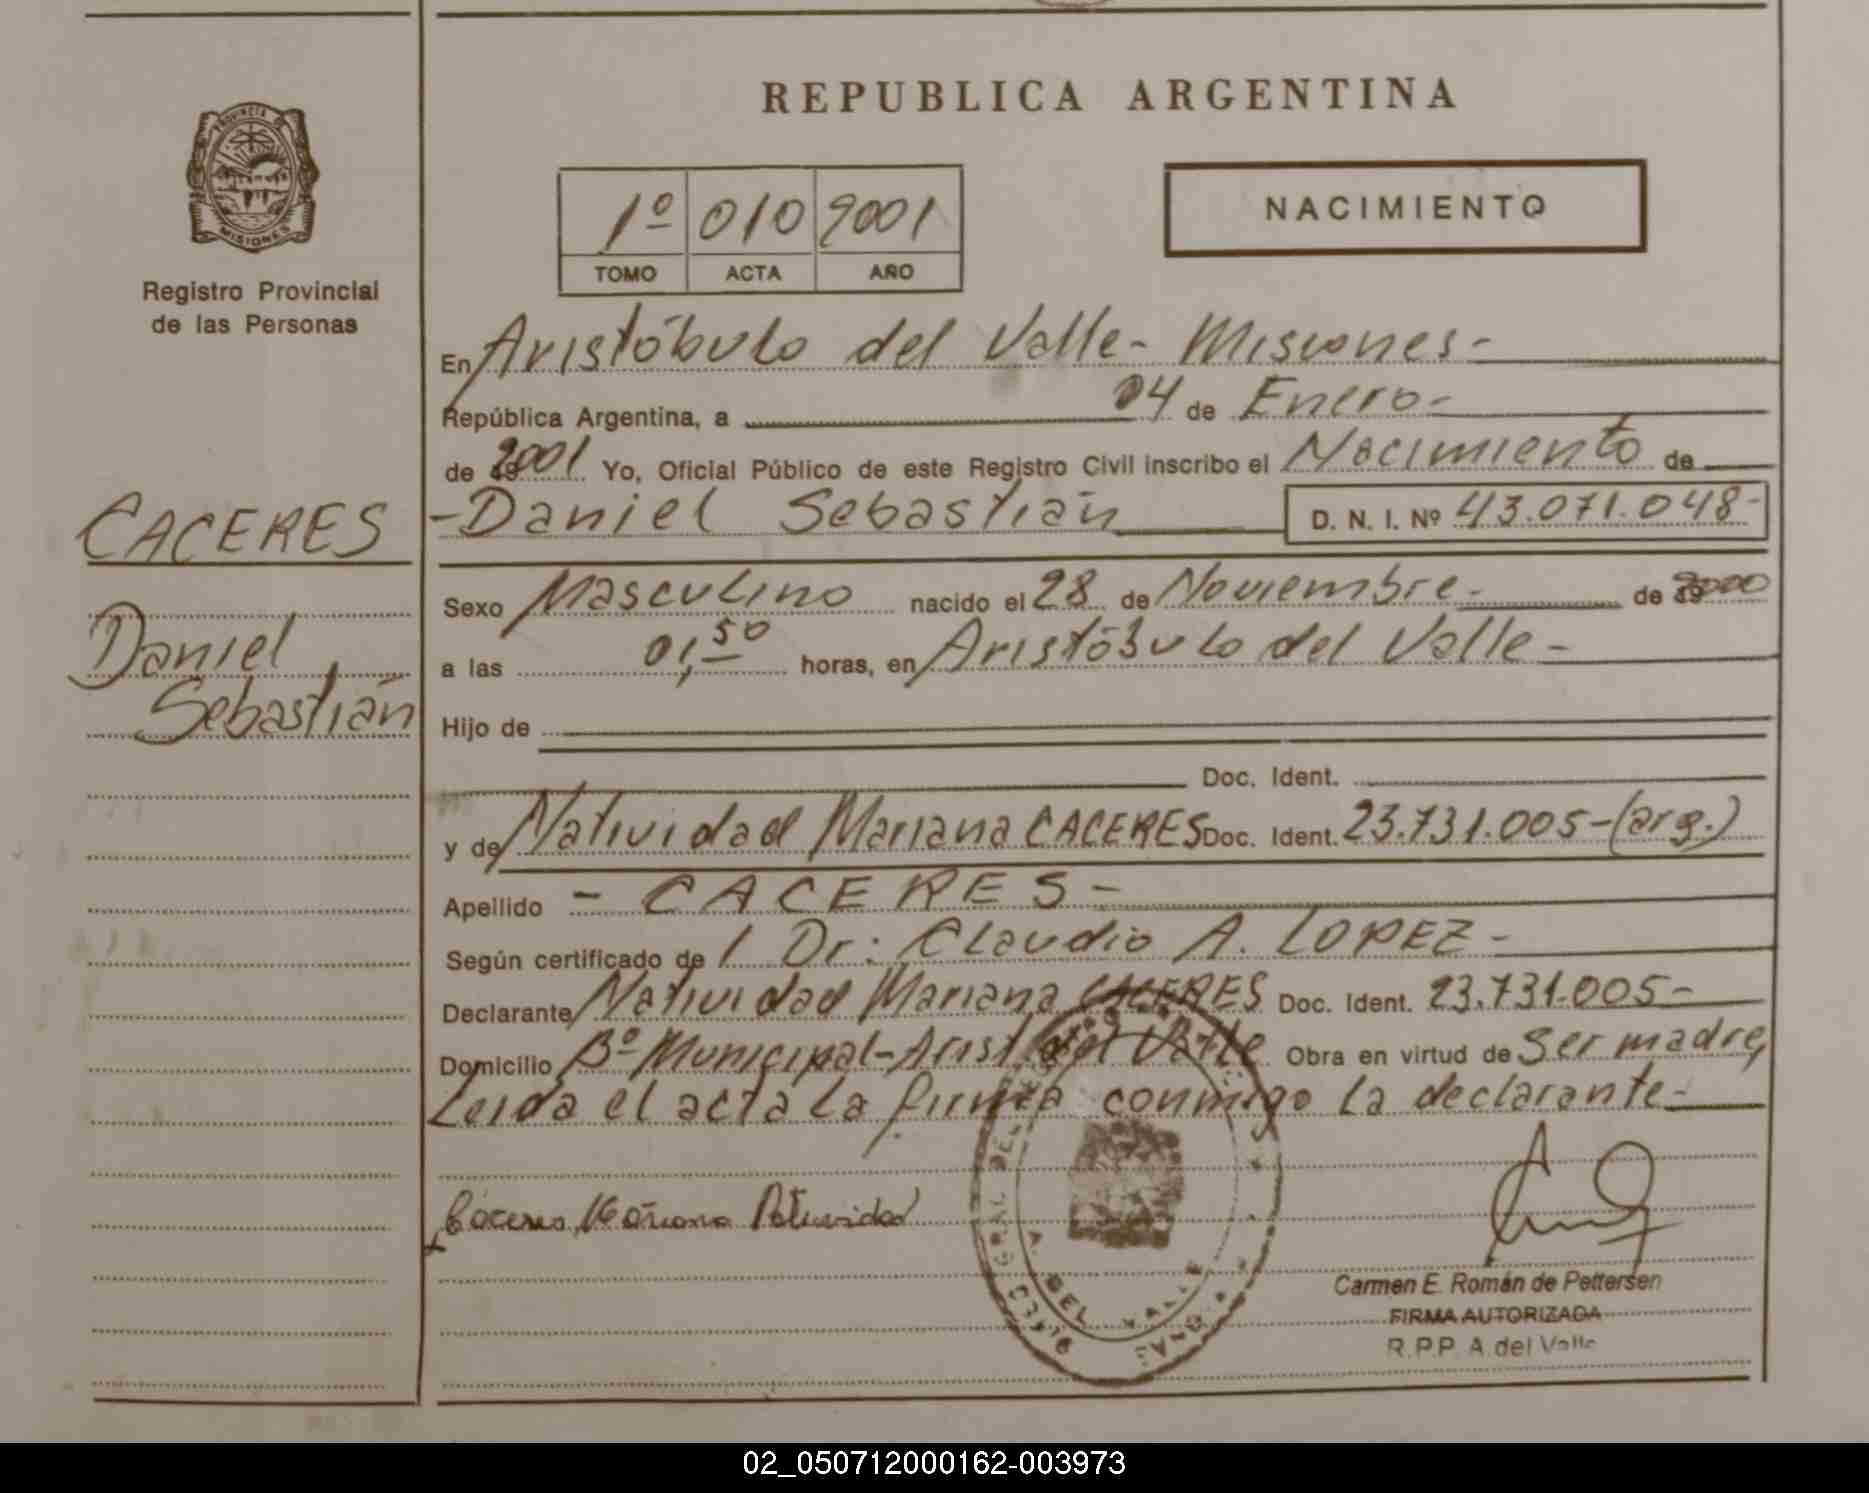 REPUBLICA ARGENTINA
PROVINCIA DE
MISIONES
Registro Provincial
de las Personas
1º 010 2001
TOMO ACTA AÑO
NACIMIENTO
En Aristóbulo del Valle - Misiones -
República Argentina, a 04 de Enero -
de 2001 Yo, Oficial Público de este Registro Civil inscribo el Nacimiento de
CACERES
Daniel
Sebastián
- Daniel Sebastián D. N. I. Nº 43.071.048-
Sexo Masculino nacido el 28 de Noviembre - de 2000
a las 01,50 horas, en Aristóbulo del Valle -
Hijo de
Doc. Ident.
y de Natividad Mariana CACERES Doc. Ident. 23.731.005-(arg.)
Apellido - CACERES -
Según certificado de l Dr: Claudio A. LOPEZ -
Declarante Natividad Mariana CACERES Doc. Ident. 23.731.005-
Domicilio Bº Municipal - Arist. del Valle Obra en virtud de Ser madre,
Leida el acta la firma conmigo la declarante -
A. DEL VALLE
Carmen E. Román de Pettersen
FIRMA AUTORIZADA
R.P.P. A. del Valle
02_050712000162-003973